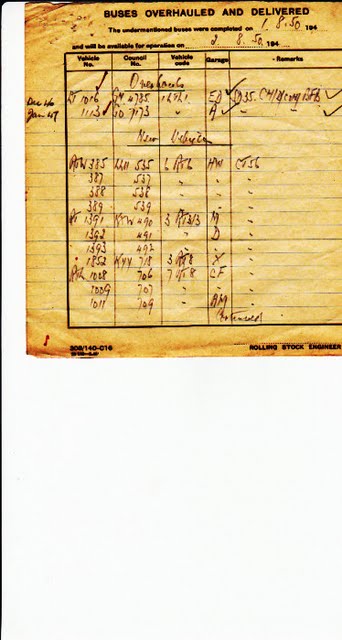 BUSES OVERHAULED AND DELIVERED
The undermentioned buses were completed on 1. 8. 50 194
and will be available for operation on 2 8. 50. 194
Vehicle No. Council No. Vehicle code Garage - Remarks
Overhauls
Dec 46 1016 4785
Jan 47 1113 7173 " A "
New Vehicles
RTW 385 LLU 535 6 RT6 HW CT56
387 537 " " "
388 538 " " "
389 539 " " "
RT 1391 KXW 490 3 RT3/3 M "
1392 491 " D "
1393 492 " " "
1852 KYY 718 3 RT8 X "
RTL 1008 706 7 RT8 CF "
1009 707 " " "
1011 709 " AM "
308/140-016
ROLLING STOCK ENGINEER